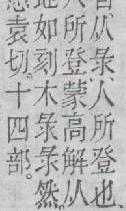 从彔、人所登也、
所登蒙高解从
地如刻木彔彔然。
袁切。十四部。